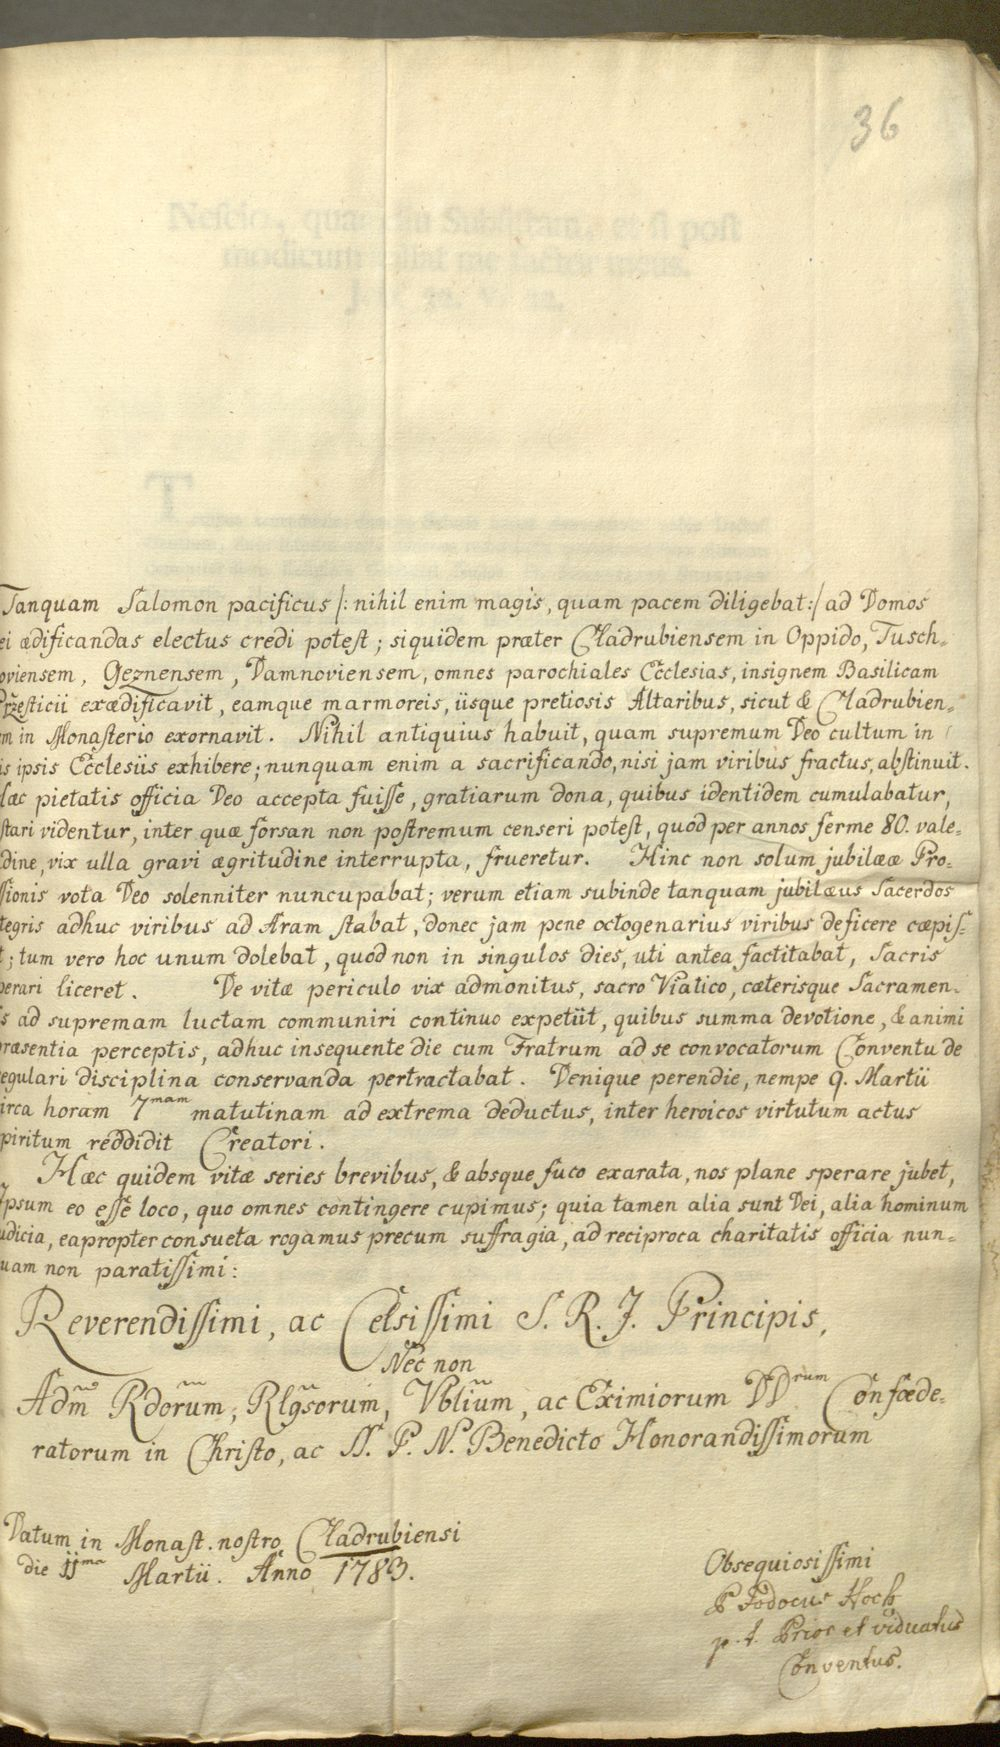 36
Tanquam Salomon pacificus /: nihil enim magis, quam pacem diligebat :/ ad Domos
ei ædificandas electus credi potest; siquidem præter Cladrubiensem in Oppido, Tusch-
oviensem, Geznensem, Damnoviensem, omnes parochiales Ecclesias, insignem Basilicam
Przesticii exædificavit, eamque marmoreis, iisque pretiosis Altaribus, sicut & Cladrubien-
m in Monasterio exornavit. Nihil antiquius habuit, quam supremum Deo cultum in
is ipsis Ecclesiis exhibere; nunquam enim a sacrificando, nisi jam viribus fractus, abstinuit.
æc pietatis officia Deo accepta fuisse, gratiarum dona, quibus identidem cumulabatur,
stari videntur, inter quæ forsan non postremum censeri potest, quod per annos ferme 80. vale-
dine, vix ulla gravi ægritudine interrupta, frueretur. Hinc non solum jubilææ Pro-
ssionis vota Deo solenniter nuncupabat; verum etiam subinde tanquam jubilæus Sacerdos
tegris adhuc viribus ad Aram stabat, donec jam pene octogenarius viribus deficere cæpis-
t; tum vero hoc unum dolebat, quod non in singulos dies, uti antea factitabat, Sacris
perari liceret. De vitæ periculo vix admonitus, sacro Viatico, cæterisque Sacramen-
s ad supremam luctam communiri continuo expetiit, quibus summa devotione, & animi
ræsentia perceptis, adhuc insequente die cum Fratrum ad se convocatorum Conventu de
egulari disciplina conservanda pertractabat. Denique perendie, nempe 9. Martii
irca horam 7mam matutinam ad extrema deductus, inter heroicos virtutum actus
piritum reddidit Creatori.
Hæc quidem vitæ series brevibus, & absque fuco exarata, nos plane sperare jubet,
Ipsum eo esse loco, quo omnes contingere cupimus; quia tamen alia sunt Dei, alia hominum
udicia, eapropter consueta rogamus precum suffragia, ad reciproca charitatis officia nun-
uam non paratissimi:
Reverendissimi, ac Celsissimi S. R. J. Principis,
Nec non
Adm Rdorum, Rlgsorum, Vblium, ac Eximiorum DDrum Confæde-
ratorum in Christo, ac SS. P. N. Benedicto Honorandissimorum
Datum in Monast. nostro Cladrubiensi
die 11ma Martii. Anno 1783.
Obsequiosissimi
P Jodocus Hoch
p. t. Prior et viduatus
Conventus.